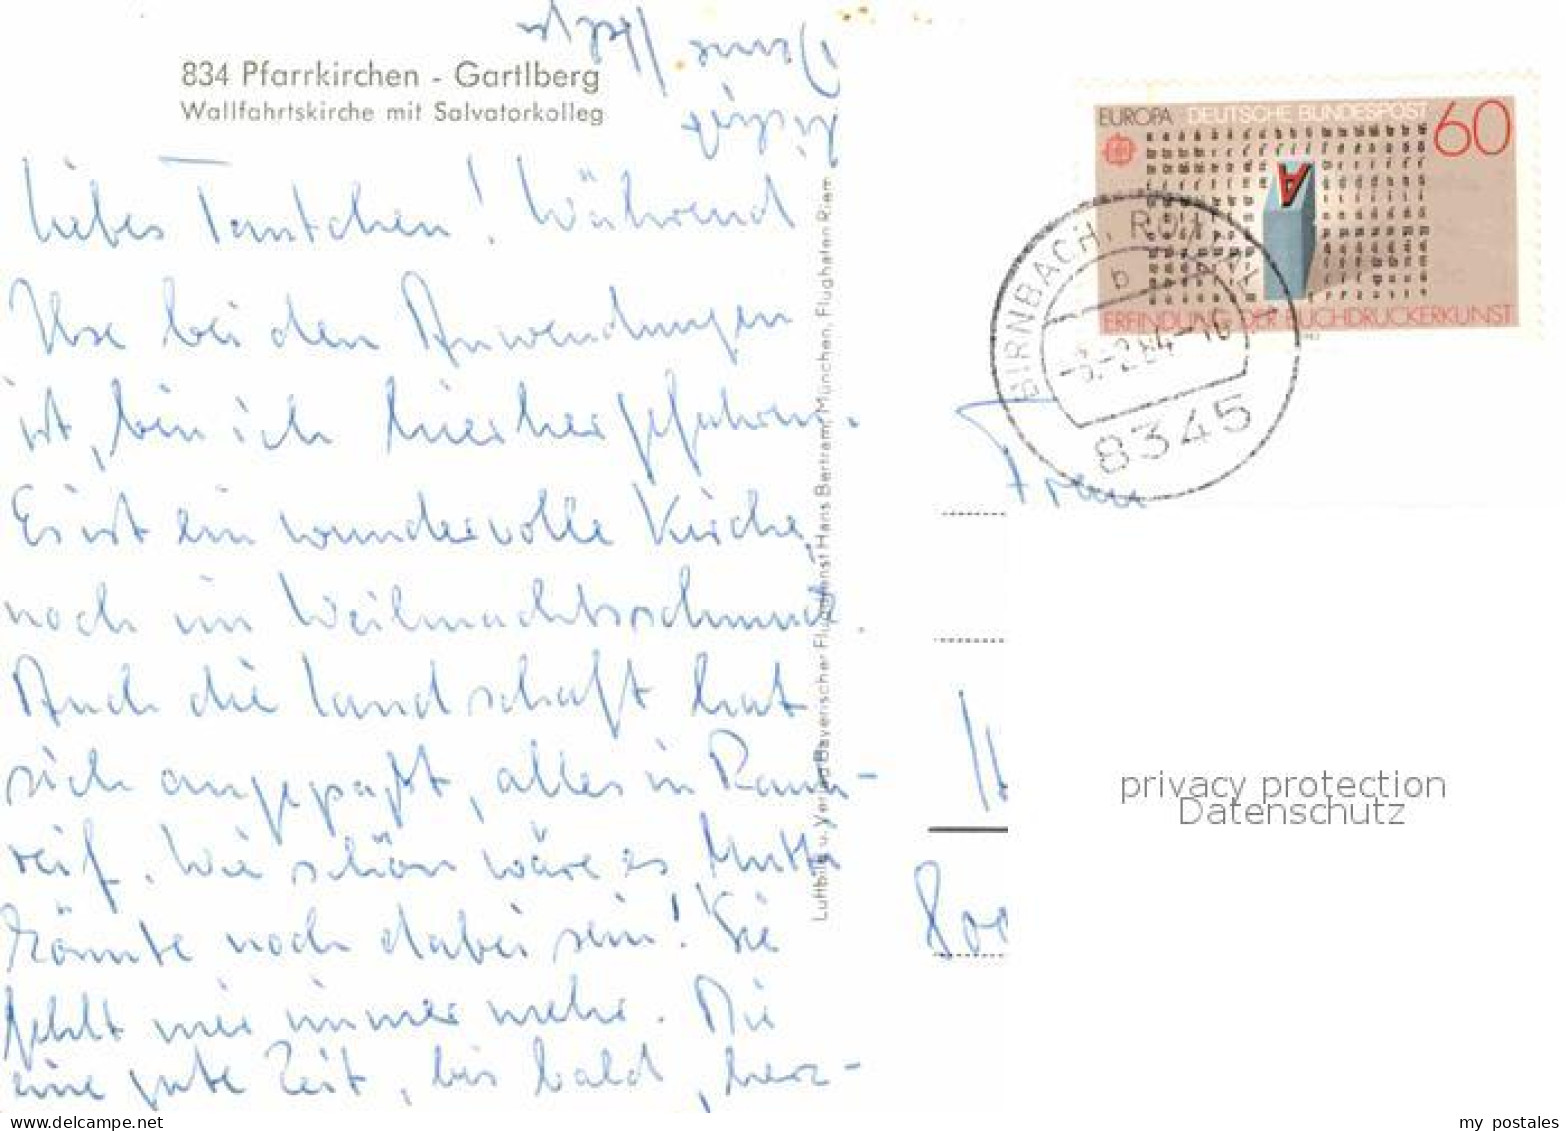 834 Pfarrkirchen - Gartlberg
Wallfahrtskirche mit Salvatorkolleg
liebes Tantchen! Während
Ilse bei den Anwendungen
ist, bin ich hierher gefahren.
Es ist ein wundervolle Kirche,
noch im Weihnachtsschmuck.
Auch die Landschaft hat
sich angepaßt, alles in Rauh-
reif. Wie schön wäre es Mutti
könnte noch dabei sein! Sie
fehlt mir immer mehr. Dir
eine gute Zeit, bis bald, herz-
lichst
Deine
Luftbild u. Verlag Bayerischer Flugdienst Hans Bertram, München, Flughafen Riem
EUROPA DEUTSCHE BUNDESPOST 60
A
ERFINDUNG DER BUCHDRUCKERKUNST
BIRNBACH, ROTTAL
b
-3.-2.84-16
8345
Frau
800
privacy protection
Datenschutz
www.delcampe.net
my postales